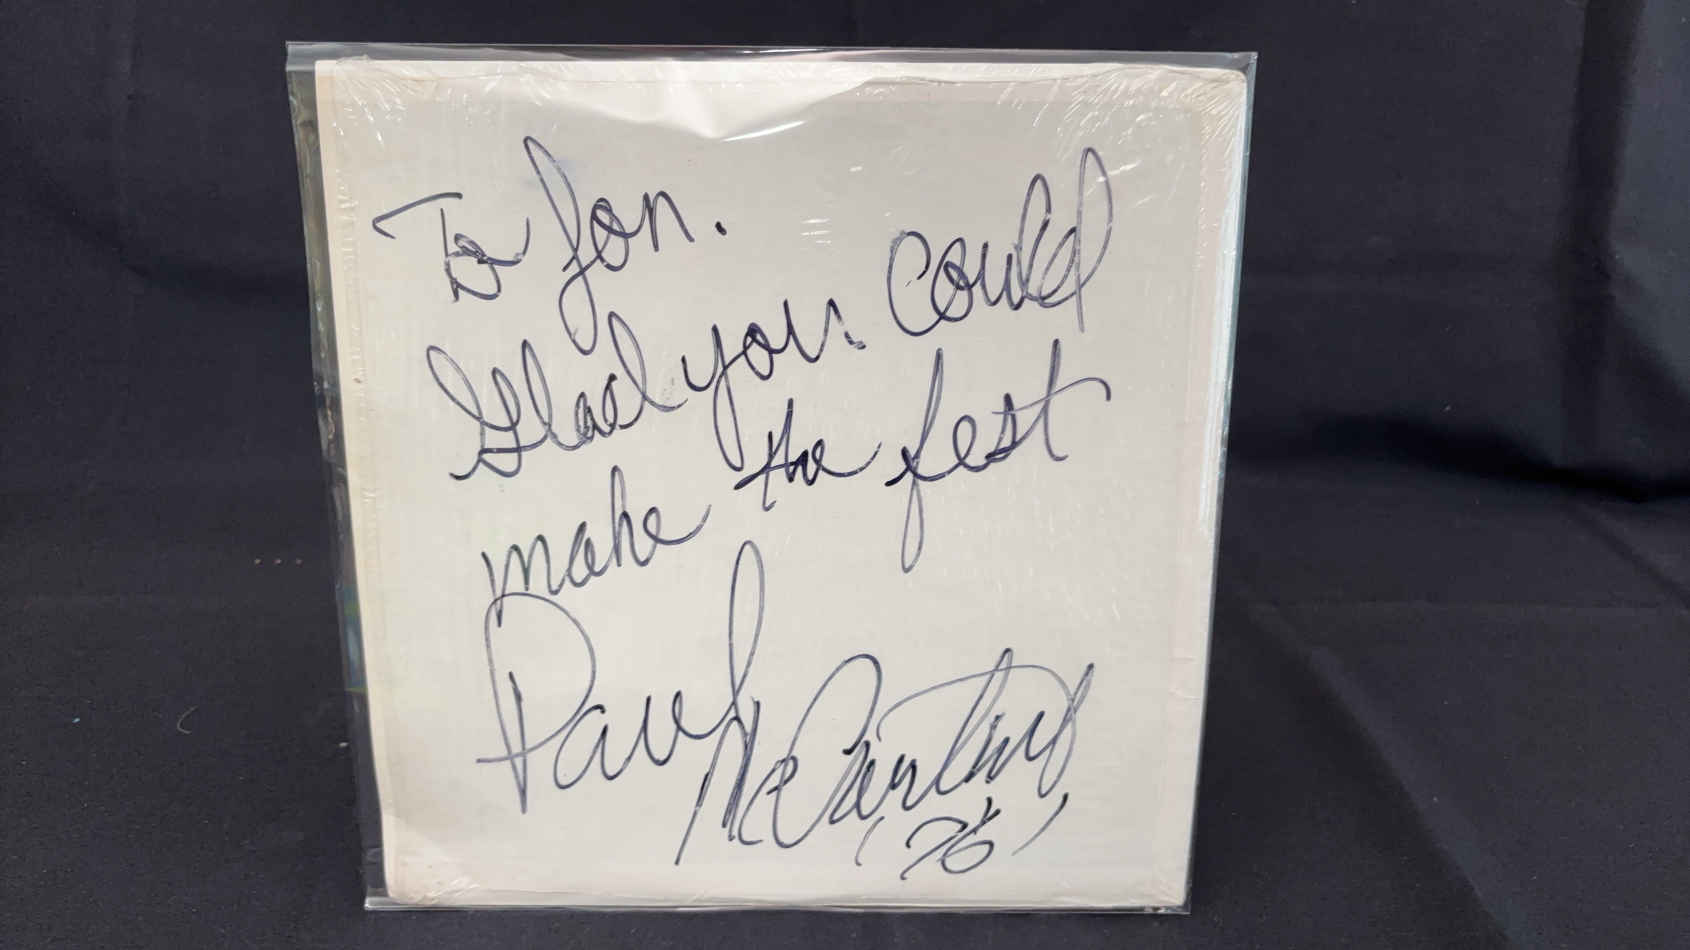 To Jon.
Glad you could
make the fest
Paul McCartney
('76)